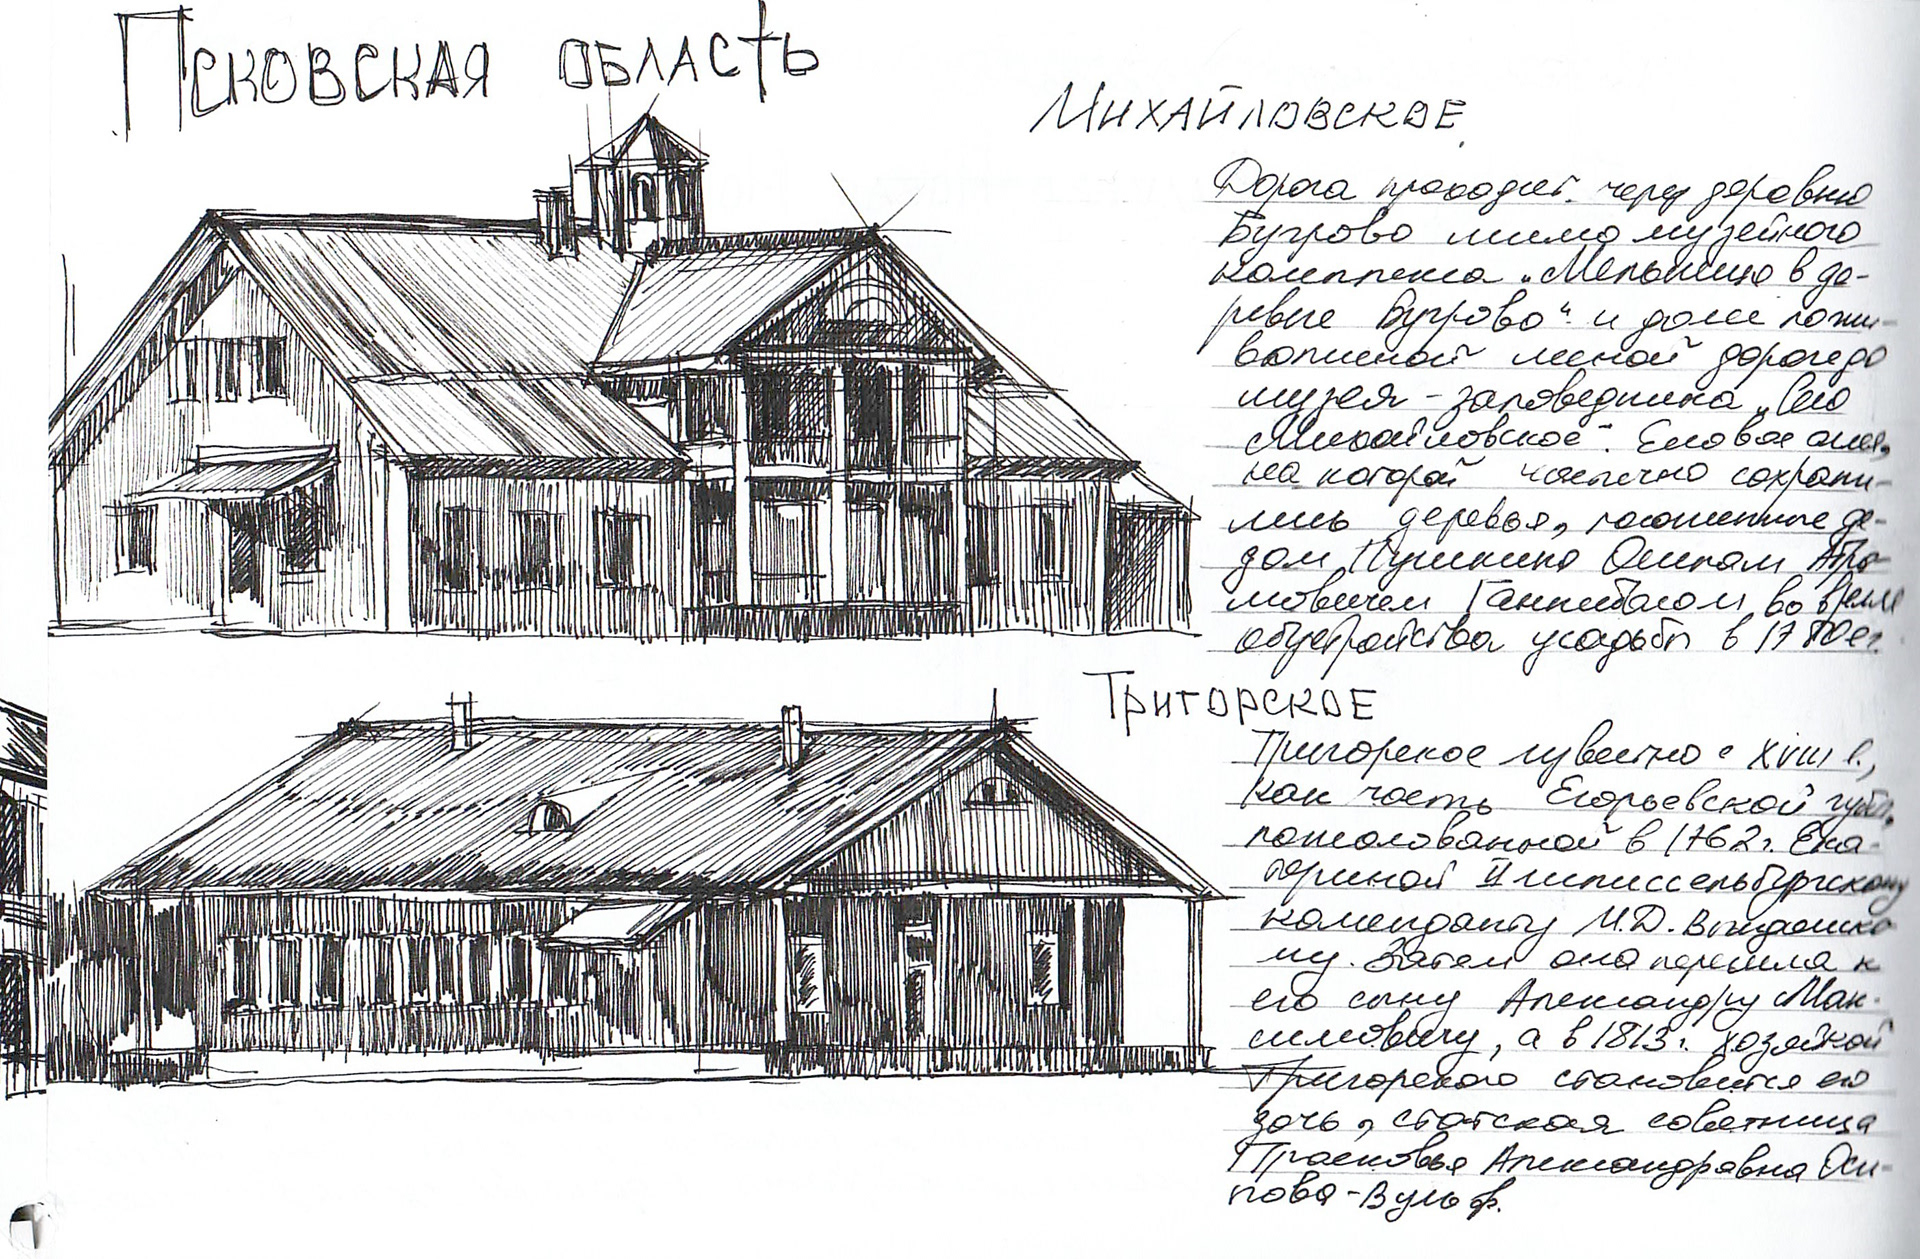 Псковская область
Михайловское
Дорога проходит через деревню
Бугрово мимо музейного
комплекса „Мельница в де-
ревне Бугрово“ и далее по жи-
вописной лесной дороге до
музея-заповедника „Село
Михайловское“. Еловая аллея,
на которой частично сохрани-
лись деревья, посаженные де-
дом Пушкина Осипом Абра-
мовичем Ганнибалом во время
обустройства усадьбы в 1780е г.
Тригорское
Тригорское известно с XVIII в.,
как часть Егорьевской губы,
пожалованной в 1762 г. Ека-
териной II шлиссельбургскому
коменданту М.Д. Вындомско
му. Затем она перешла к
его сыну Александру Мак-
симовичу, а в 1813 г. хозяйкой
Тригорского становится его
дочь, статская советница
Прасковья Александровна Оси-
пова-Вульф.